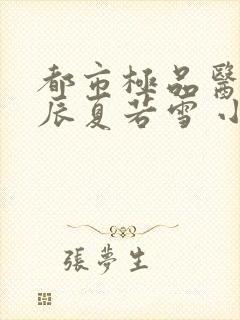 都市極品醫
辰夏若雪 小
張夢生